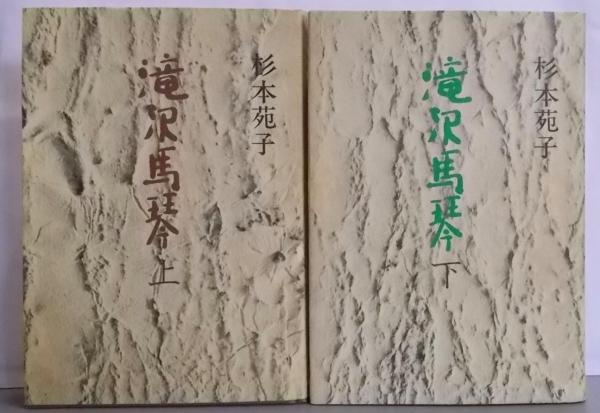 杉本苑子
滝沢馬琴 上
杉本苑子
滝沢馬琴 下